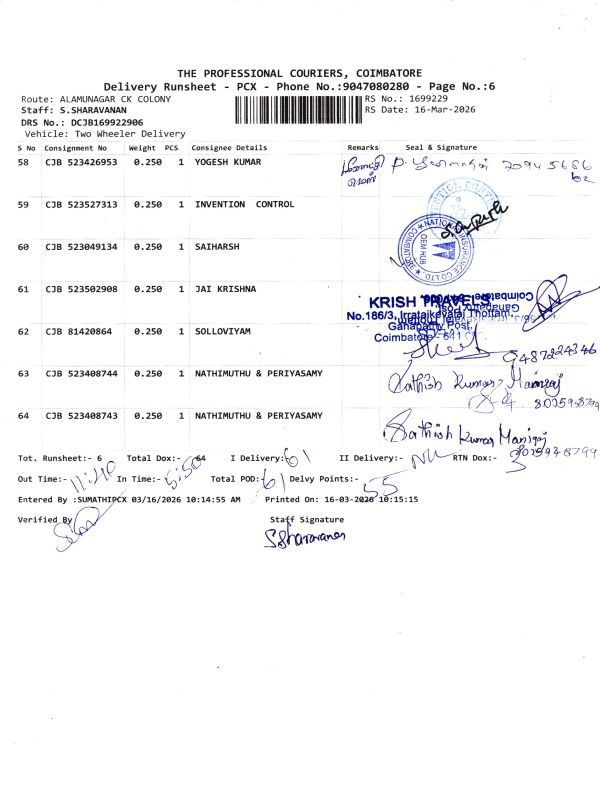 THE PROFESSIONAL COURIERS, COIMBATORE
Delivery Runsheet - PCX - Phone No.:9047080280 - Page No.:6
Route: ALAMUNAGAR CK COLONY
RS No.: 1699229
Staff: S.SHARAVANAN
RS Date: 16-Mar-2026
DRS No.: DCJB169922906
Vehicle: Two Wheeler Delivery
S No Consignment No Weight PCS Consignee Details Remarks Seal & Signature
58 CJB 523426953 0.250 1 YOGESH KUMAR 70945686
62
59 CJB 523527313 0.250 1 INVENTION CONTROL
60 CJB 523049134 0.250 1 SAIHARSH
NATIONAL INSURANCE CO LTD COIMBATORE
OEM HUB
61 CJB 523502908 0.250 1 JAI KRISHNA
KRISH TRAVELS
No.186/3, Irrataikevalai Thottam,
Ganapathy Post,
Coimbatore - 641
62 CJB 81420864 0.250 1 SOLLOVIYAM
9487224346
63 CJB 523408744 0.250 1 NATHIMUTHU & PERIYASAMY Sathish Kumar
64 CJB 523408743 0.250 1 NATHIMUTHU & PERIYASAMY Sathish Kumar
Tot. Runsheet:- 6 Total Dox:- 64 I Delivery:- 61 II Delivery:- Nil RTN Dox:- 3
Out Time:- 11:40 In Time:- 5:50 Total POD:- 61 Delvy Points:- 55
Entered By :SUMATHIPCX 03/16/2026 10:14:55 AM Printed On: 16-03-2026 10:15:15
Verified By Staff Signature
S.Sharavanan